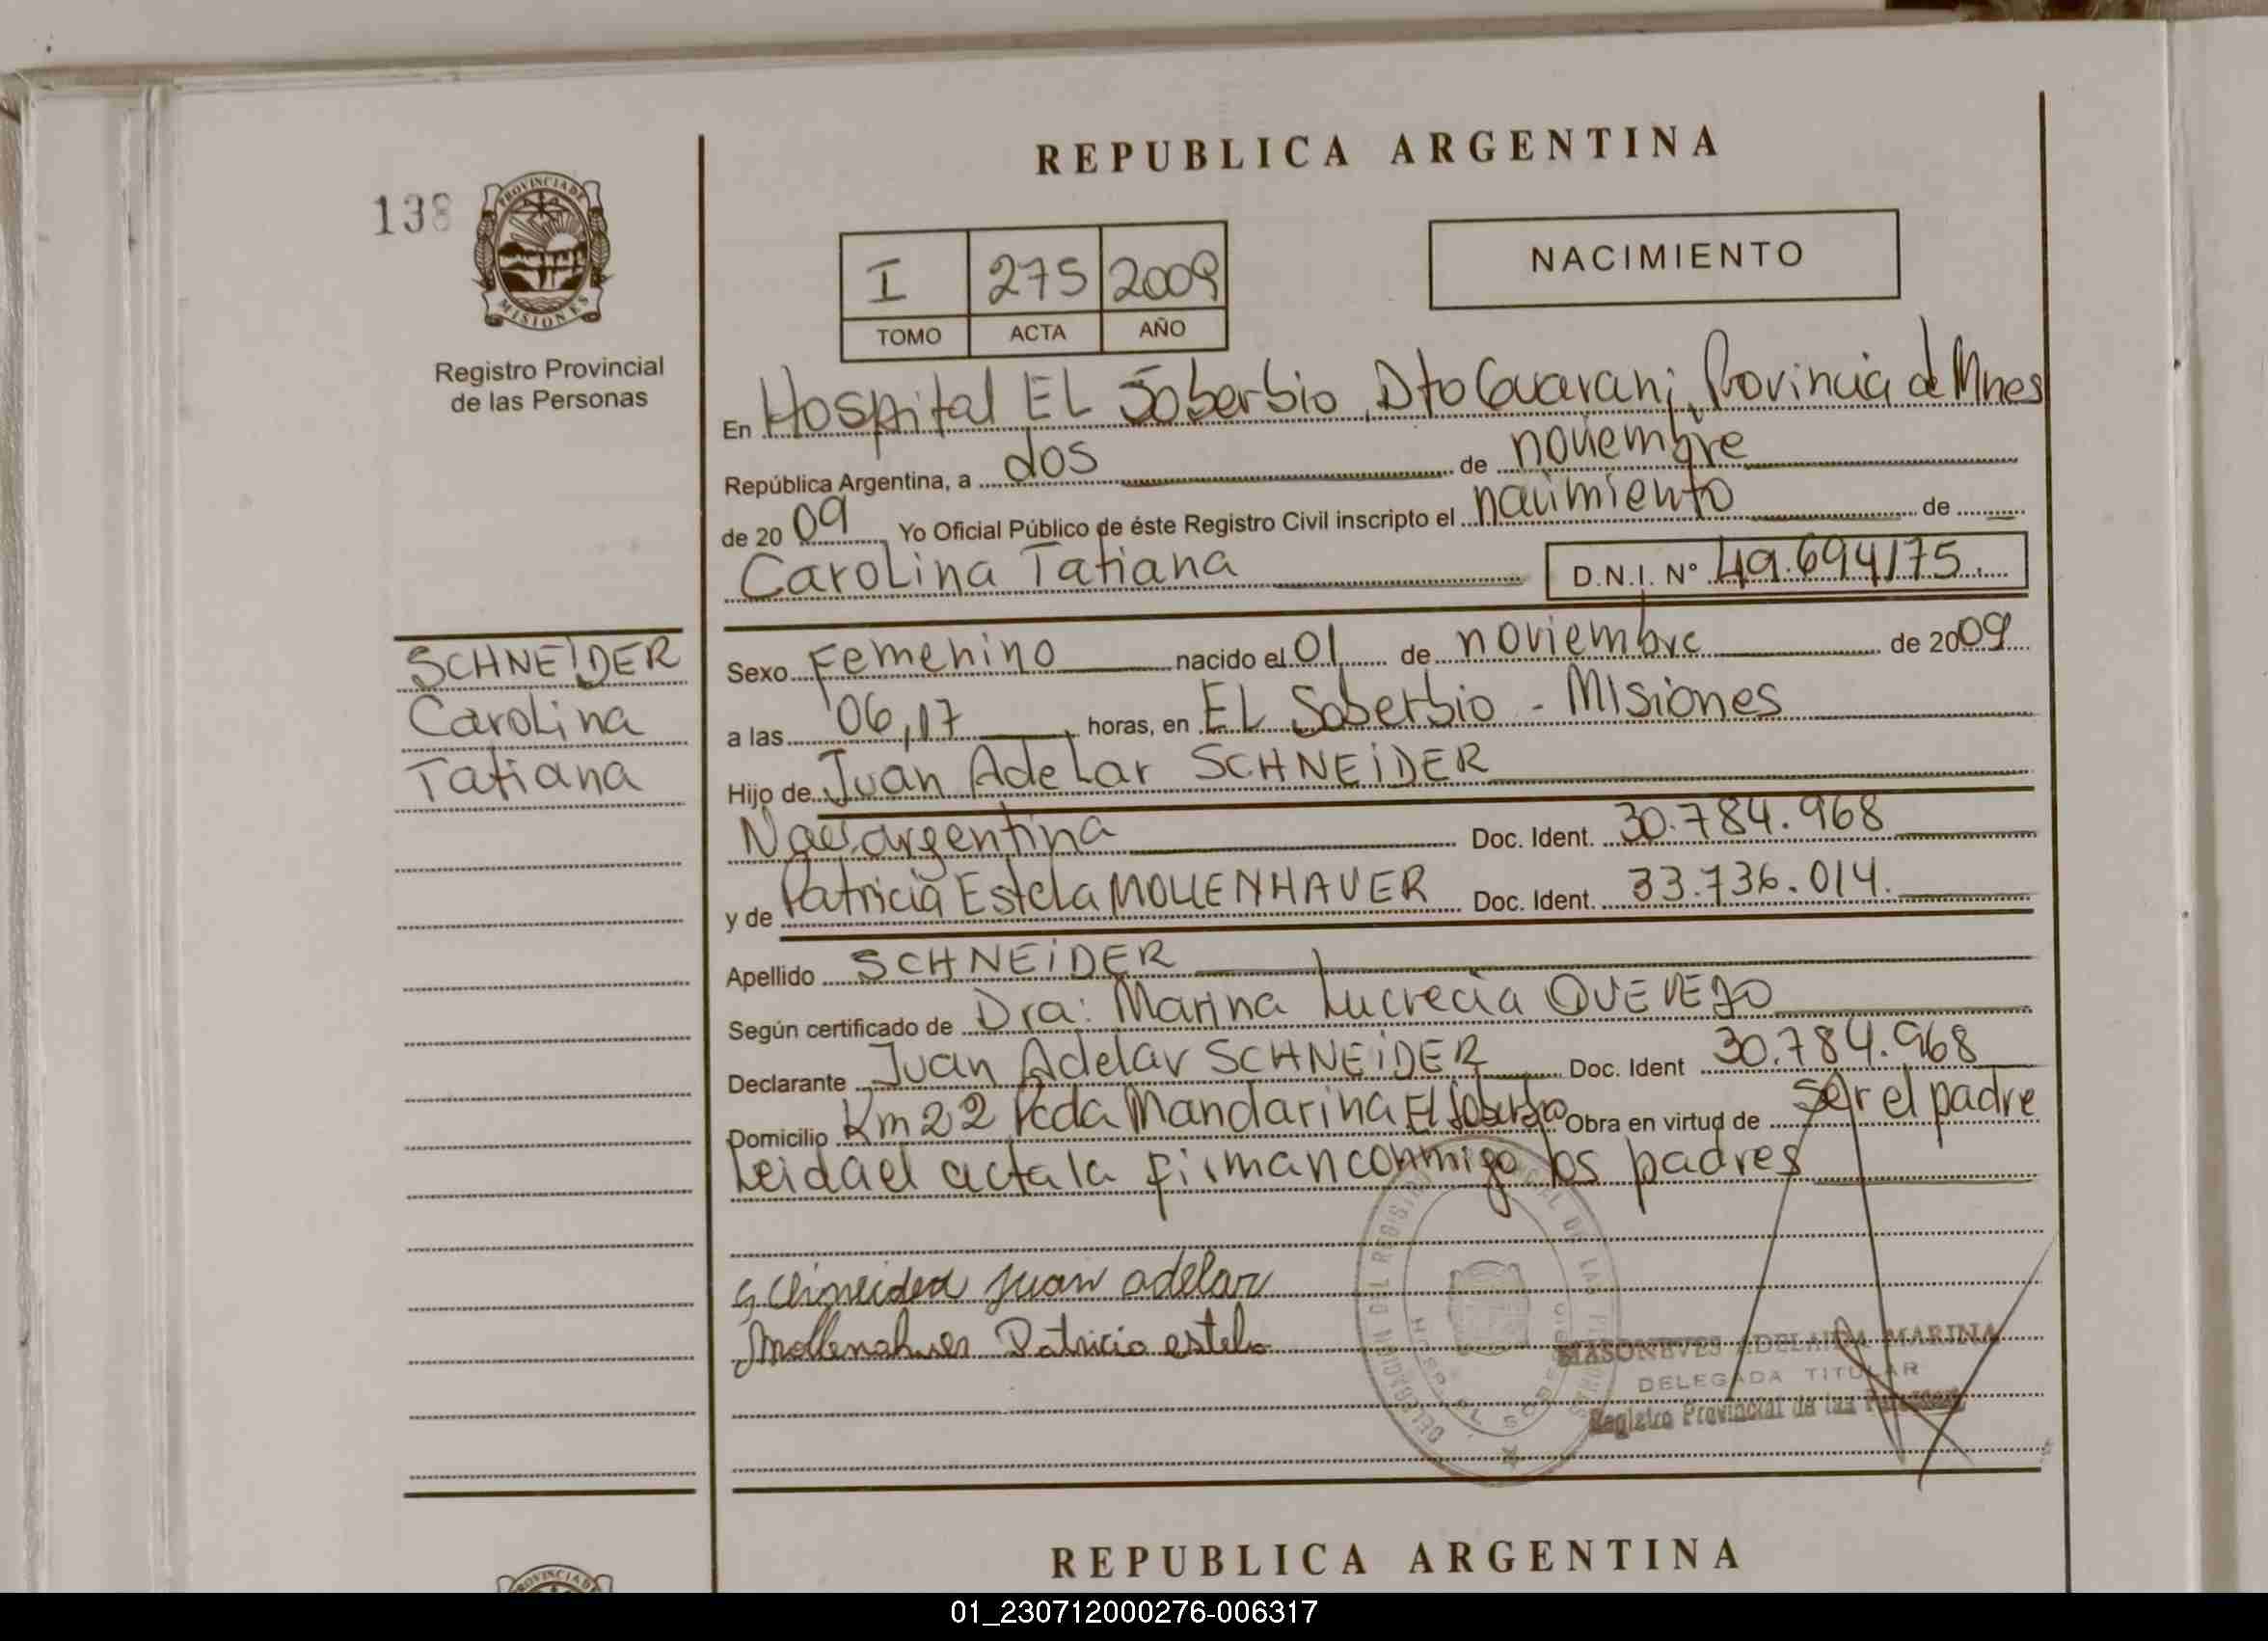 REPUBLICA ARGENTINA
138
PROVINCIA DE
MISIONES
Registro Provincial
de las Personas
I 275 2009
TOMO ACTA AÑO
NACIMIENTO
En Hospital EL Soberbio, Dto Guarani, Provincia de Mnes
República Argentina, a dos de noviembre
de 2009 Yo Oficial Público de éste Registro Civil inscripto el nacimiento de
Carolina Tatiana D.N.I. Nº 49.694175.
SCHNEIDER
Carolina
Tatiana
Sexo Femenino nacido el 01 de noviembre de 2009
a las 06,17 horas, en EL Soberbio - Misiones
Hijo de Juan Adelar SCHNEIDER
Nac. argentina Doc. Ident. 30.784.968
y de Patricia Estela MOLLENHAUER Doc. Ident. 33.736.014.
Apellido SCHNEIDER
Según certificado de Dra: Marina Lucrecia QUEVEDO
Declarante Juan Adelar SCHNEIDER Doc. Ident 30.784.968
Domicilio Km 22 Pcda Mandarina El Soberbio Obra en virtud de ser el padre
Leida el acta la firman conmigo los padres
Schneider Juan adelar
Mollenahuer Patricia estela
MASONEVES ADELAIDA MARINA
DELEGADA TITULAR
Registro Provincial de las Personas
REPUBLICA ARGENTINA
PROVINCIA DE
01_230712000276-006317